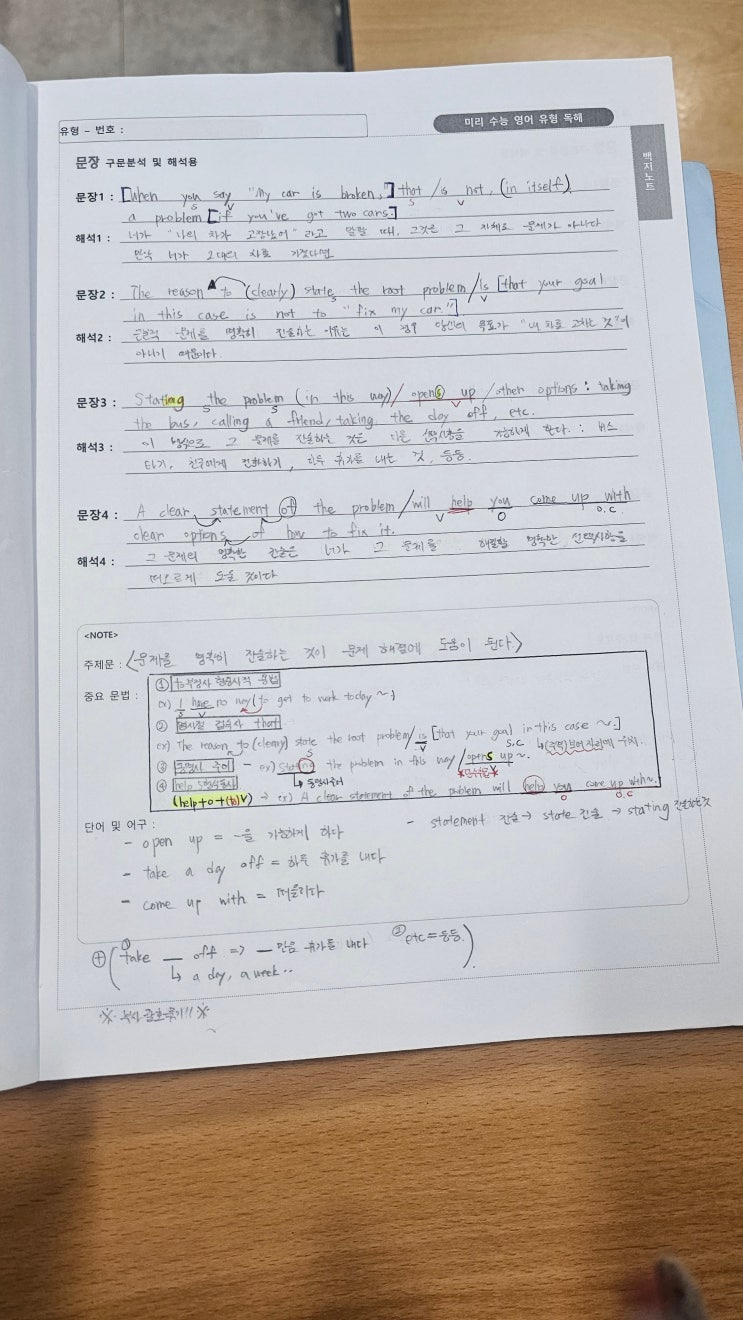 유형 - 번호 :
미리 수능 영어 유형 독해
백지노트
문장 구문분석 및 해석용
문장1 : [When you say "My car is broken,"] that / is not, (in itself),
S V S V
a problem [if you've got two cars.]
해석1 : 너가 "나의 차가 고장났어" 라고 말할 때, 그것은 그 자체로 문제가 아니다
만약 너가 2대의 차를 가졌다면
문장2 : The reason to (clearly) state the root problem / is [that your goal
S V
in this case is not to "fix my car."]
해석2 : 근본적 문제를 명확히 진술하는 이유는 이 경우 당신의 목표가 "내 차를 고치는 것"이
아니기 때문이다.
문장3 : Stating the problem (in this way) / opens up / other options : taking
S S V
the bus, calling a friend, taking the day off, etc.
해석3 : 이 방식으로 그 문제를 진술하는 것은 다른 선택사항을 가능하게 한다. : 버스
타기, 친구에게 전화하기, 하루 휴가를 내는 것, 등등.
문장4 : A clear statement of the problem / will help you come up with
V O O.C.
clear options of how to fix it.
해석4 : 그 문제의 명확한 진술은 너가 그 문제를 해결할 명확한 선택사항을
떠오르게 도울 것이다
<NOTE>
주제문 : <문제를 명확히 진술하는 것이 문제 해결에 도움이 된다.>
중요 문법 : ① to부정사 형용사적 용법
ex) I have no way (to get to work today ~)
S V
② 명사절 접속사 that
ex) The reason to (clearly) state the root problem / is [that your goal in this case ~.]
S V S.C
③ 동명사 주어 - ex) Stating the problem in this way / opens up ~.
동명사주어 V
④ help 5형식동사
(help+o+(to)V) → ex) A clear statement of the problem will help you come up with ~.
O O.C
단어 및 어구 :
- statement 진술 → state 진술 → stating 진술하는것
- open up = ~을 가능하게 하다
- take a day off = 하루 휴가를 내다
- come up with = 떠올리다
⊕ ( ① take __ off => __ 만큼 휴가를 내다 ② etc = 등등. )
↳ a day, a week..
※ 부사 괄호묶기!! ※